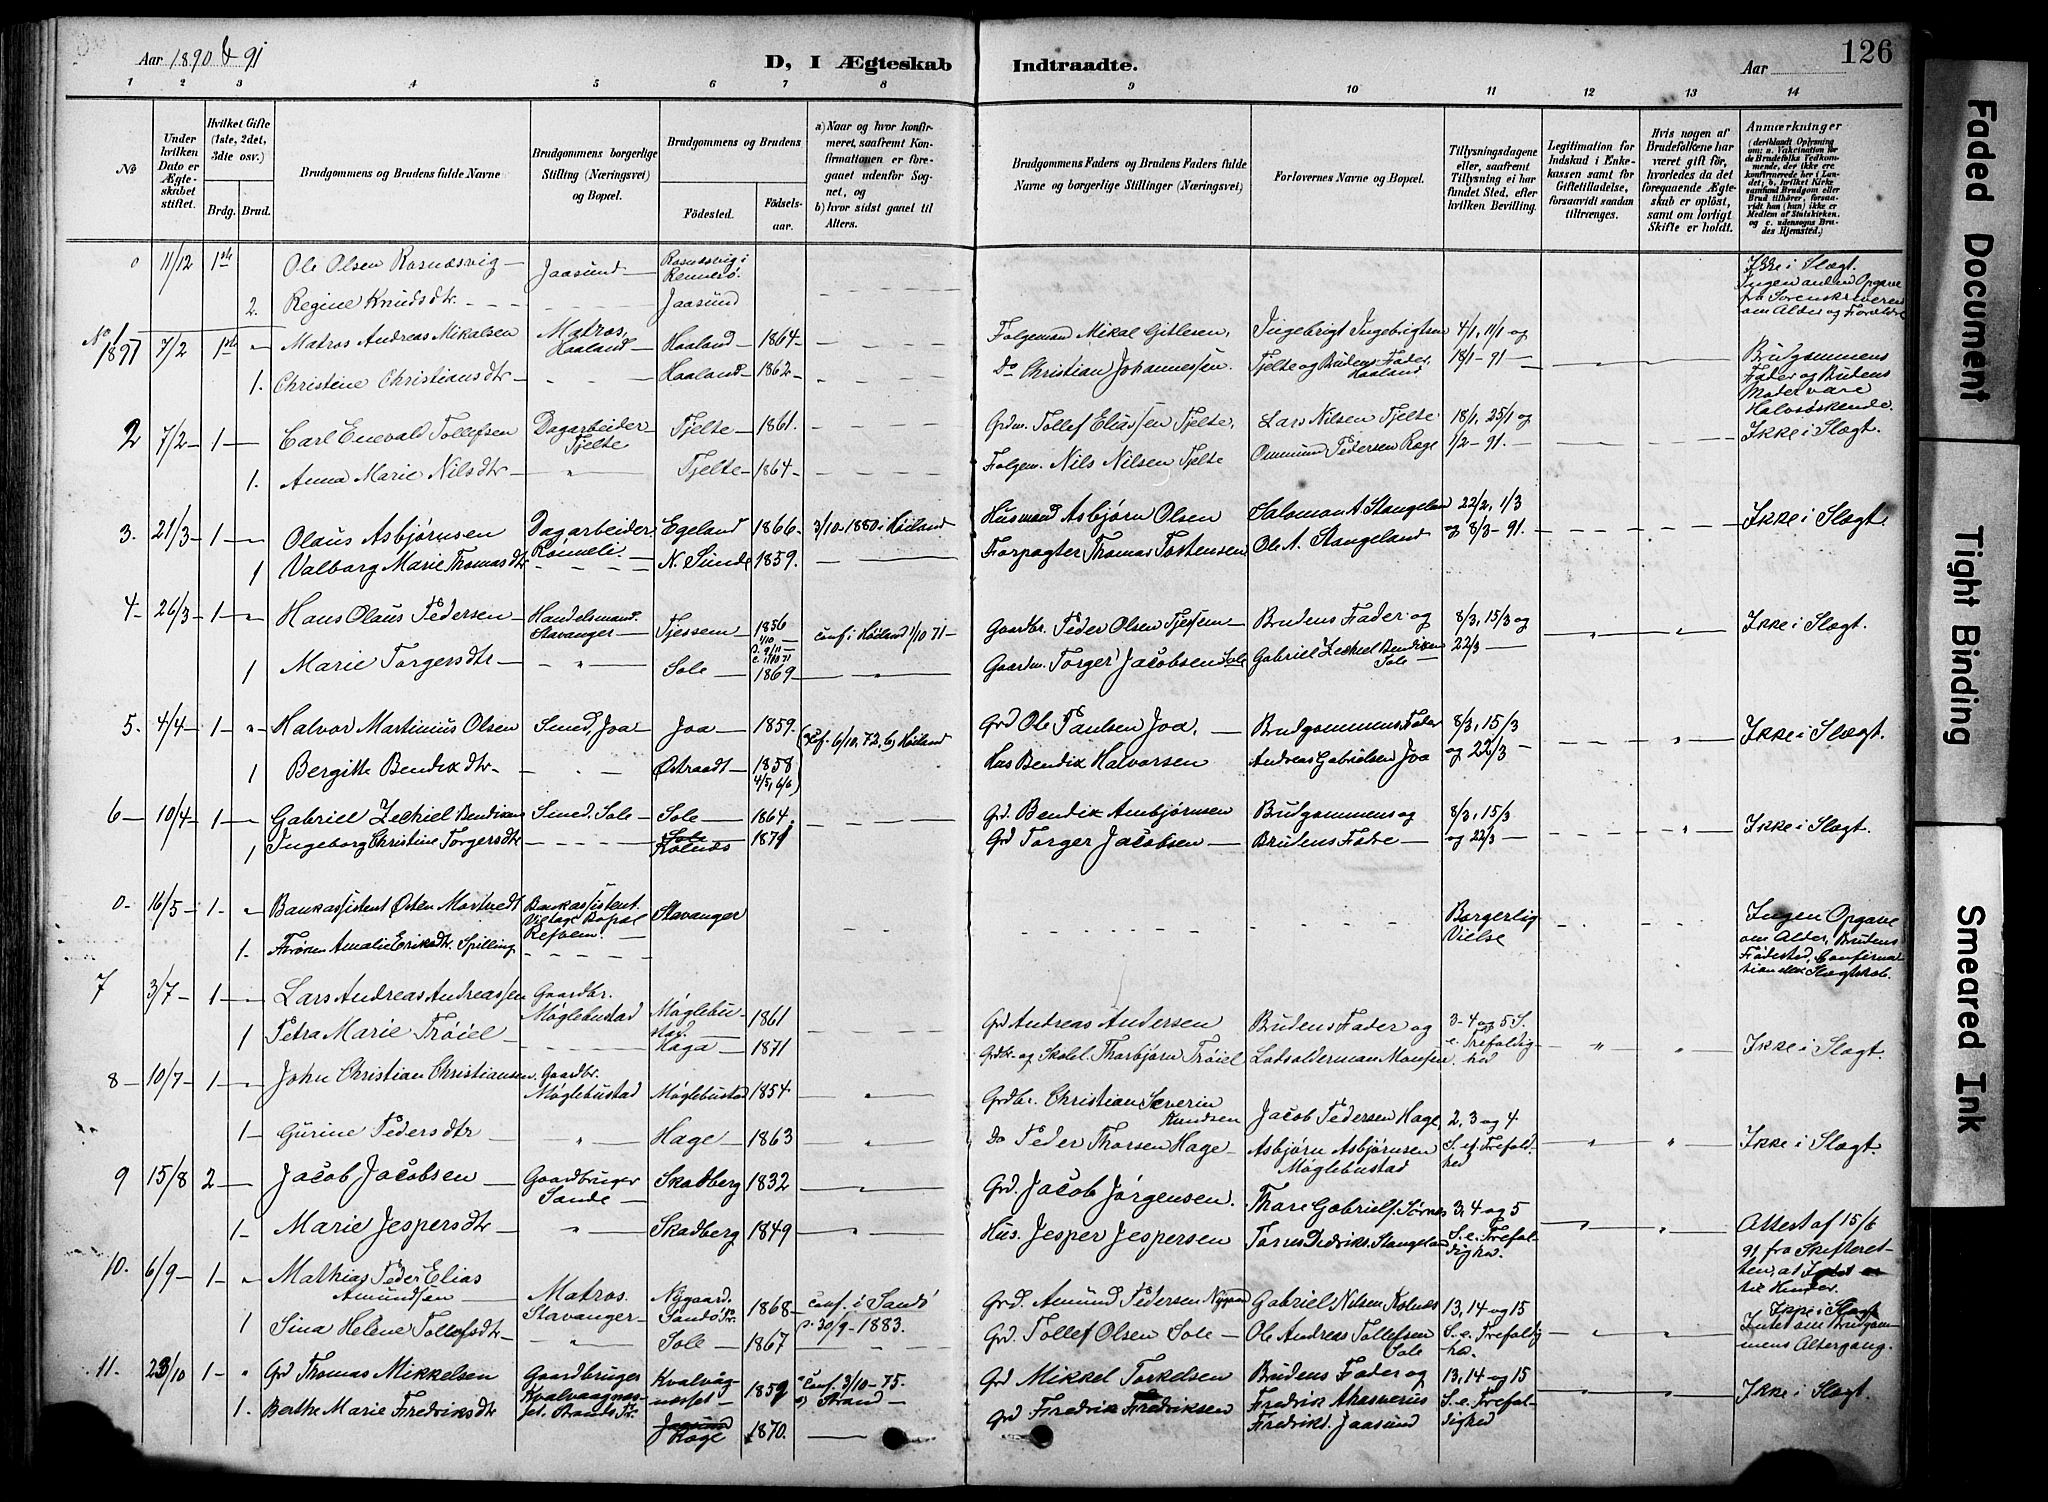 Aar 1890 & 91
D, I Ægteskab
Indtraadte.
Aar
126
1 2 3 4 5 6 7 8 9 10 11 12 13 14
No
Under hvilken Dato er Ægteskabet stiftet.
Hvilket Gifte (1ste, 2det, 3die osv.)
Brdg. Brud.
Brudgommens og Brudens fulde Navne
Brudgommens borgerlige Stilling (Næringsvei) og Bopæl.
Brudgommens og Brudens
Fødested.
Fødsels-aar.
a) Naar og hvor konfirmeret, saafremt Konfirmationen er foregaaet udenfor Sognet, og
b) hvor sidst gaaet til Alters.
Brudgommens Faders og Brudens Faders fulde Navne og borgerlige Stillinger (Næringsvei)
Forlovernes Navne og Bopæl.
Tillysningsdagene eller, saafremt Tillysning ei har fundet Sted, efter hvilken Bevilling.
Legitimation for Indskud i Enkekassen samt for Giftetilladelse, forsaavidt saadan tiltrænges.
Hvis nogen af Brudefolkene har været gift før, hvorledes da det foregaaende Ægteskab er opløst, samt om lovligt Skifte er holdt.
Anmærkninger (deriblandt Oplysning om: a. Vakcination for de Brudefolks Vedkommende, der ikke ere konfirmerede her i Landet; b. hvilket Kirkesamfund Brudgom eller Brud tilhører, forsaavidt han (hun) ikke er Medlem af Statskirken, og c. udensogns Brudes Hjemsted.)
0 11/12 1ste Ole Olsen Rosnæsvig Jaasund Rosnæsvig i Rennesø. Ikke i Slægt. Ingen anden Opgave fra Sorenskriveren om Alder og Forældre
2. Regine Knudsdtr Jaasund
No 1 1891 7/2 1ste Matros Andreas Mikalsen Matros, Haaland Haaland 1864 Folgemand Mikal Gitlesen, Ingebrigt Ingebrigtsen 4/1, 11/1 og
1. Christine Christiansdtr Haaland 1862 Do Christian Johannessen. Tjelte og Brudens Fader, Haaland 18/1-91 Brudgommens Fader og Brudens Moder vare Halvsøskende.
2 7/2 1 Carl Enevald Tollefsen Dagarbeider Tjelte Tjelte 1861. Grdm. Tollef Eliassen Tjelte, Lars Nilsen Tjelte 18/1, 25/1 og Ikke i Slægt.
1. Anna Marie Nilsdtr " Tjelte 1864 Folgem. Nils Nilsen Tjelte Ommum Pedersen Ræge 1/2-91.
3. 21/3 1 Olaus Asbjørnsen Dagarbeider Egeland 1866 3/10-1880 i Høiland Husmand Asbjørn Olsen Salomon A Stangeland 22/2, 1/3 Ikke i Slægt.
1 Valborg Marie Thomasdtr N. Sunde 1859. Forpagter Thomas Tostensen Ole A. Stangeland og 8/3-91.
4 26/3 1 Hans Olaus Pedersen Handelsmand. Stavanger Tjessem 1856 conf. i Høiland 1/10 71 Gaardbr. Peder Olsen Tjessem Brudens Fader og 8/3, 15/3 og " " Ikke i Slægt.
1 Marie Torgersdtr " Sole 1869 " Gaardm. Torger Jacobsen Sole Gabriel Zechiel Bendiksen Sole 22/3
5. 4/4 1 " Halvor Martinius Olsen Smed, Joa Joa 1859. (conf. 6/10, 72, b) Høiland Grd Ole Paulsen Joa, Brudgommens Fader 8/3, 15/3 " Ikke i Slægt.
1 Bergitte Bendixdtr Østraadt 1858 Hus Bendik Halvorsen Andreas Gabrielsen Joa og 22/3
6 10/4 1 Gabriel Zechiel Bendiksen Smed. Sole Sole 1864. Grd. Bendik Ambjørnsen Brudgommens og 8/3, 15/3 " Ikke i Slægt.
1 Ingeborg Christine Torgersdtr Sole Kolnæs 1871 Grd Torger Jacobsen Brudens Fadre og 22/3
0. 16/5 1 Bankassistent Østen Mostvedt Bankassistent. Stavanger Borgerlig Vielse Ingen Opgave om Alder, Brudens Fødested, Confirmation eller Slægtskab.
1. Frøken Amalie Eriksdtr. Spilling
7 3/7 1 Lars Andreas Andreassen Gaardbr. Møglebustad Møglebustad. 1861 Grd Andreas Andersen Brudens Fader og 3-4 og 5 S. e. Trefoldighed " " Ikke i Slægt.
1 Petra Marie Trøiel Haga 1871 Grdb. og Skolel. Thorbjørn Trøiel Lodsolderman Monsen
8 10/7 1 " John Christian Christiansen Gaardbr. Møglebustad Møglebustad 1854 " Grdbr. Christian Severin Knudsen Jacob Pedersen Hage 2, 3 og 4 " " Ikke i Slægt.
1 Gurine Pedersdtr " Hage 1863 " Do Peder Thorsen Hage Asbjørn Asbjørnsen Møglebustad S. ef. Trefoldhed
9 15/8 2 Jacob Jacobsen Gaardbruger Sande Skadberg 1832 " Grd. Jacob Jørgensen. Thore Gabriels. Sørnes 3, 4 og 5
1 Marie Jespersdtr " Skadberg 1849 " Hus. Jesper Jespersen S. e. Trefoldighed. " " Attest af 15/6 91 fra Skifteretten, at Intet er til Hinder. Ikke i Slægt
10. 6/9 1 " Mathias Peder Elias Amundsen Matros. Stavanger Nygaard. 1868 conf. i Sandø 30/9-1883. Grd. Amund Pedersen Nygaard Gabriel Nilsen Kolnæs 13, 14 og 15 Intet om Brudgommens Altergang.
1 Sina Helene Tollefsdtr " Sole 1867 Grd. Tollef Olsen Sole Ole Andreas Tollefsen Sole S. e. Trefoldighed. " "
11. 23/10 1 " Grd Thomas Mikkelsen Gaardbruger 1859 conf. 3/10-75. Strand Grd Mikkel Torkelsen Brudens Fader og 13, 14 og 15 " " Ikke i Slægt.
1. Berthe Marie Fredriksdtr Jaasund Ræge 1870. Grd Fredrik Fredriksen Fredrik Ahasverus Fredriks. Jaasund S. e. Trefoldighed
Faded Document
Tight Binding
Smeared Ink